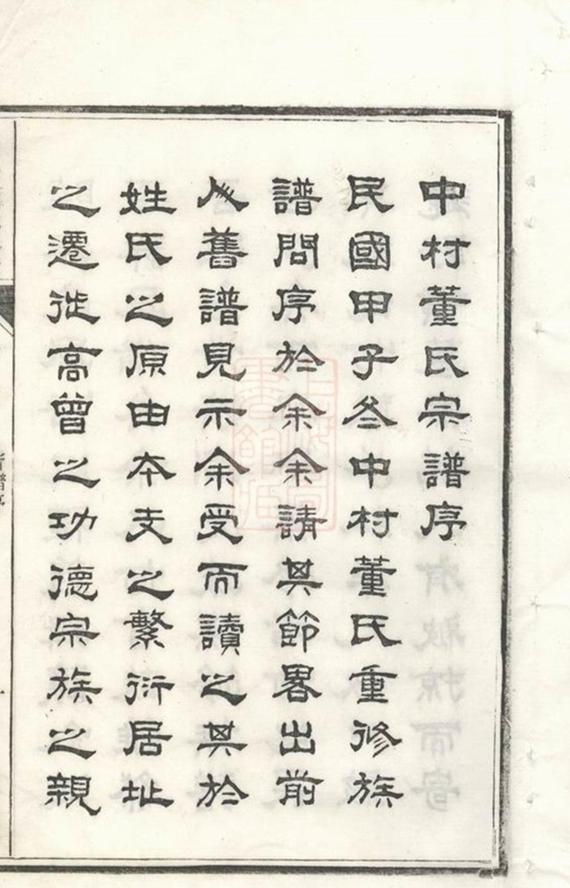 中村董氏宗譜序
民國甲子冬中村董氏重修族
譜問序於余余請其節畧出前
人舊譜見示余受而讀之其於
姓氏之原由本支之繁衍居址
之遷徙高曾之功德宗族之親